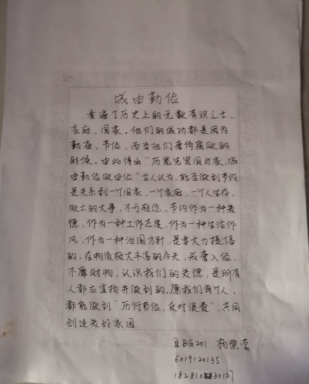 成由勤俭
看遍了历史上的无数有识之士、
家庭、国家，他们的成功都是因为
勤奋、节俭，而当他们奢侈腐败的
时候，由此得出“历览先贤国与家，成
由勤俭败由 古人认为，能否做到节约
是关系到一个国家，一个家庭，一个人生存、
的大事，不可轻忽，节约作为一种美
德，作为一种工作态度，作为一种生活作
风，作为一种治国方针，是要大力提倡
的，在物质极大丰富的今天，戒奢入俭，
不靡财物，认识我们的美德，是所有
人都应当做到的，愿我们每个人，
都能做到“厉行节俭，反对浪费”，共同
创造美好家园
201 杨
6019120135